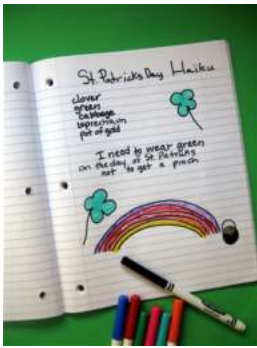 St. Patricks Day Haiku
clover
green
cabbage
leprechaun
pot of gold
I need to wear green
on the day of St. Patricks
not to get a pinch